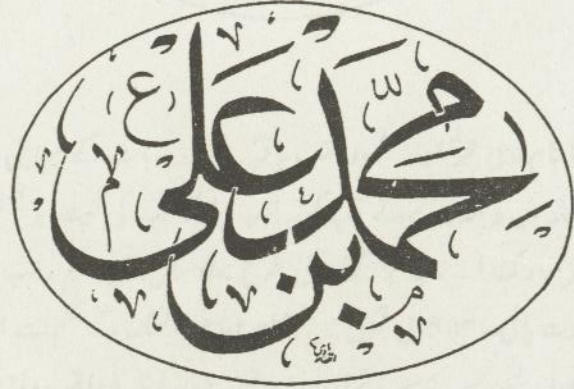 محمد بن علی